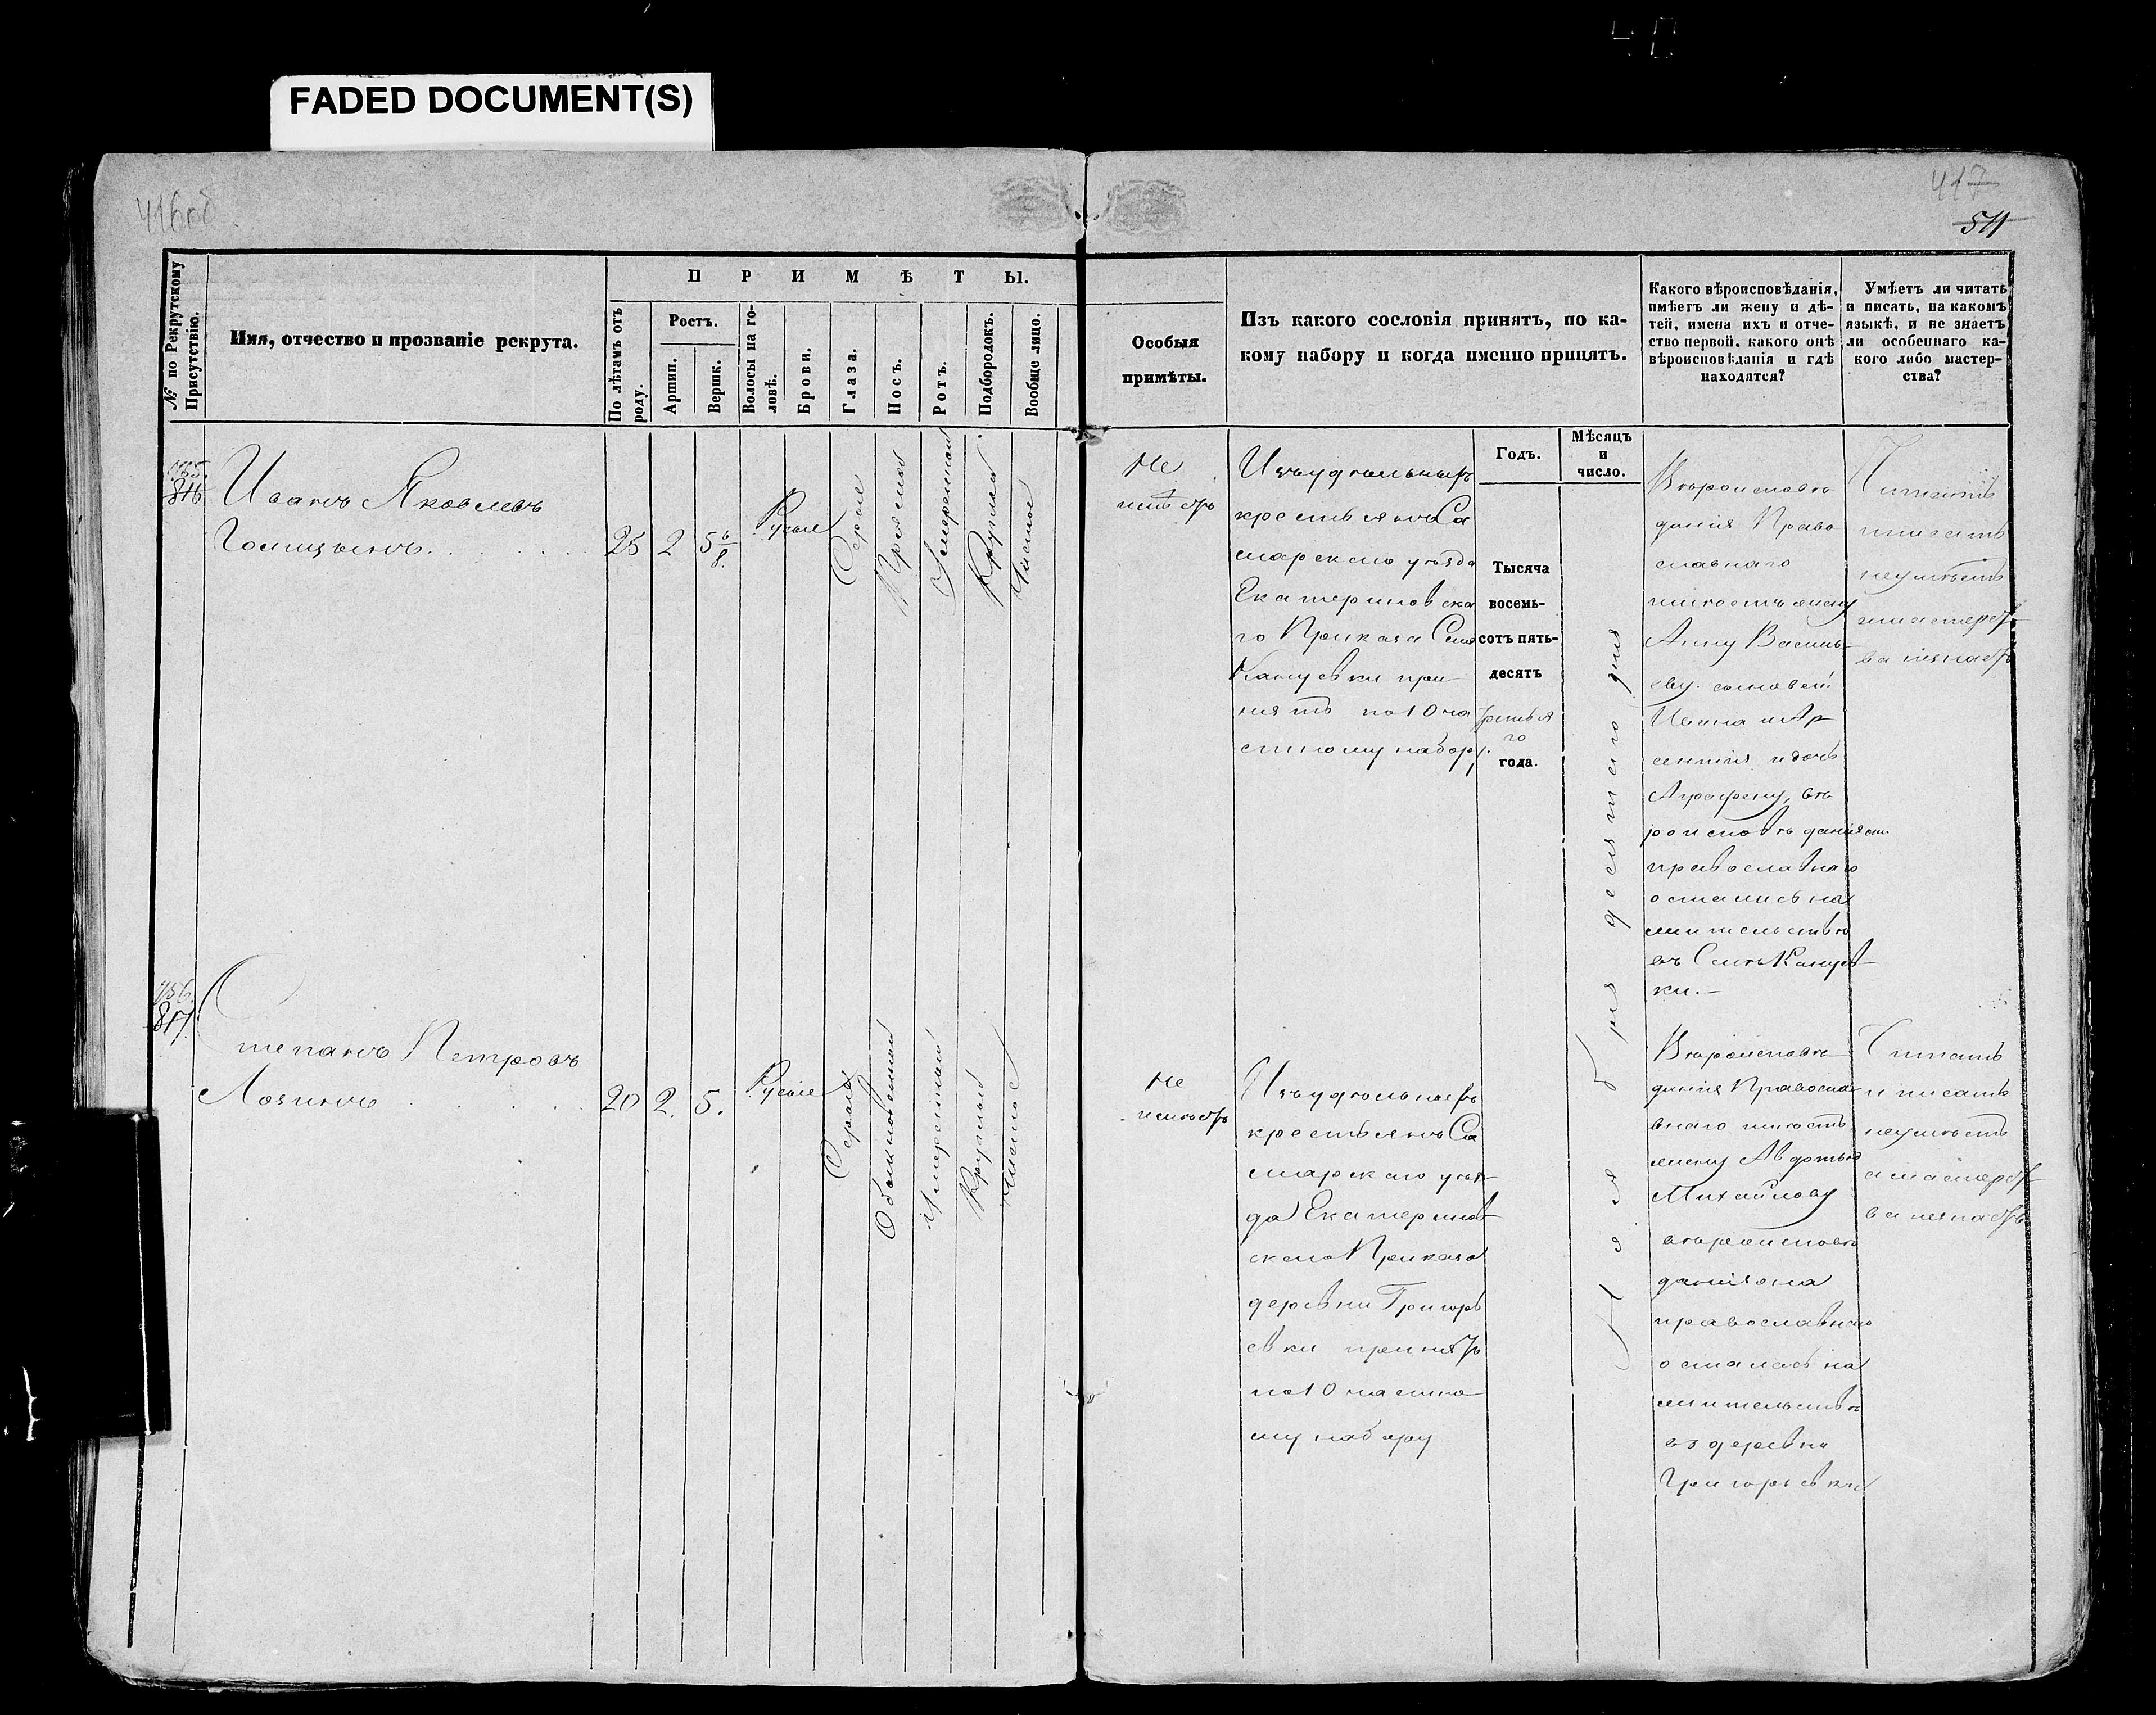 FADED DOCUMENT(S)
416об
417
511
№ по Рекрутскому Присутствію.
Имя, отчество и прозваніе рекрута.
П Р И М Ѣ Т Ы.
По лѣтамъ отъ роду.
Ростъ.
Аршин.
Вершк.
Волосы на головѣ.
Брови.
Глаза.
Носъ.
Ротъ.
Подбородокъ.
Вообще лицо.
Особыя
примѣты.
Изъ какого сословія принятъ, по ка-
кому набору и когда именно принятъ.
Какого вѣроисповѣданія,
имѣетъ ли жену и дѣ-
тей, имена ихъ и отче-
ство первой, какого онѣ
вѣроисповѣданія и гдѣ
находятся?
Умѣетъ ли читать
и писать, на какомъ
языкѣ, и не знаетъ
ли особеннаго ка-
кого либо мастер-
ства?
Годъ.
Мѣсяцъ
и
число.
816
Иванъ Яковлевъ
Голицынъ
25 2 5 6/8.
Русые
Серые
Прямой
Умеренный
Круглый
Чистое
Не
имѣетъ
Изъ удѣльныхъ
крестьянъ Са
марскаго уѣзда
Екатериновска
го Приказа Села
Кануевки при
нятъ по 10 ча
стному набору.
Тысяча
восемь-
сотъ пять-
десятъ
третья
го
года.
Ноября десятаго дня
Вѣроисповѣ
данія Право
славнаго
имѣетъ жену
Анну Василь-
еву. сыновей
Ивана и Ар
сентія и дочь
Аграфену, вѣ
роисповѣданія они
православнаго
остались на
жительствѣ
въ Селѣ Кануев-
ки.-
Читать
писать
неумѣетъ
мастерст-
ва незнаетъ
817
Степанъ Петровъ
Лозинъ
20 2. 5.
Русые
Серые
Обыкновенный
Умеренный
Круглый
Чистое
Не
имѣетъ
Изъ удѣльныхъ
крестьянъ Са
марскаго уѣз-
да Екатеринов-
скаго Приказа
деревни Григорь
евки принятъ
по 10 частно-
му набору
Вѣроисповѣ-
данія Правосла-
внаго имѣетъ
жену Авдотью
Михайлову
вѣроисповѣ
данія она
православнаго
осталась на
жительствѣ
въ деревни
Григорьевки
Читать
и писать
неумѣетъ
а мастерст-
ва незнаетъ